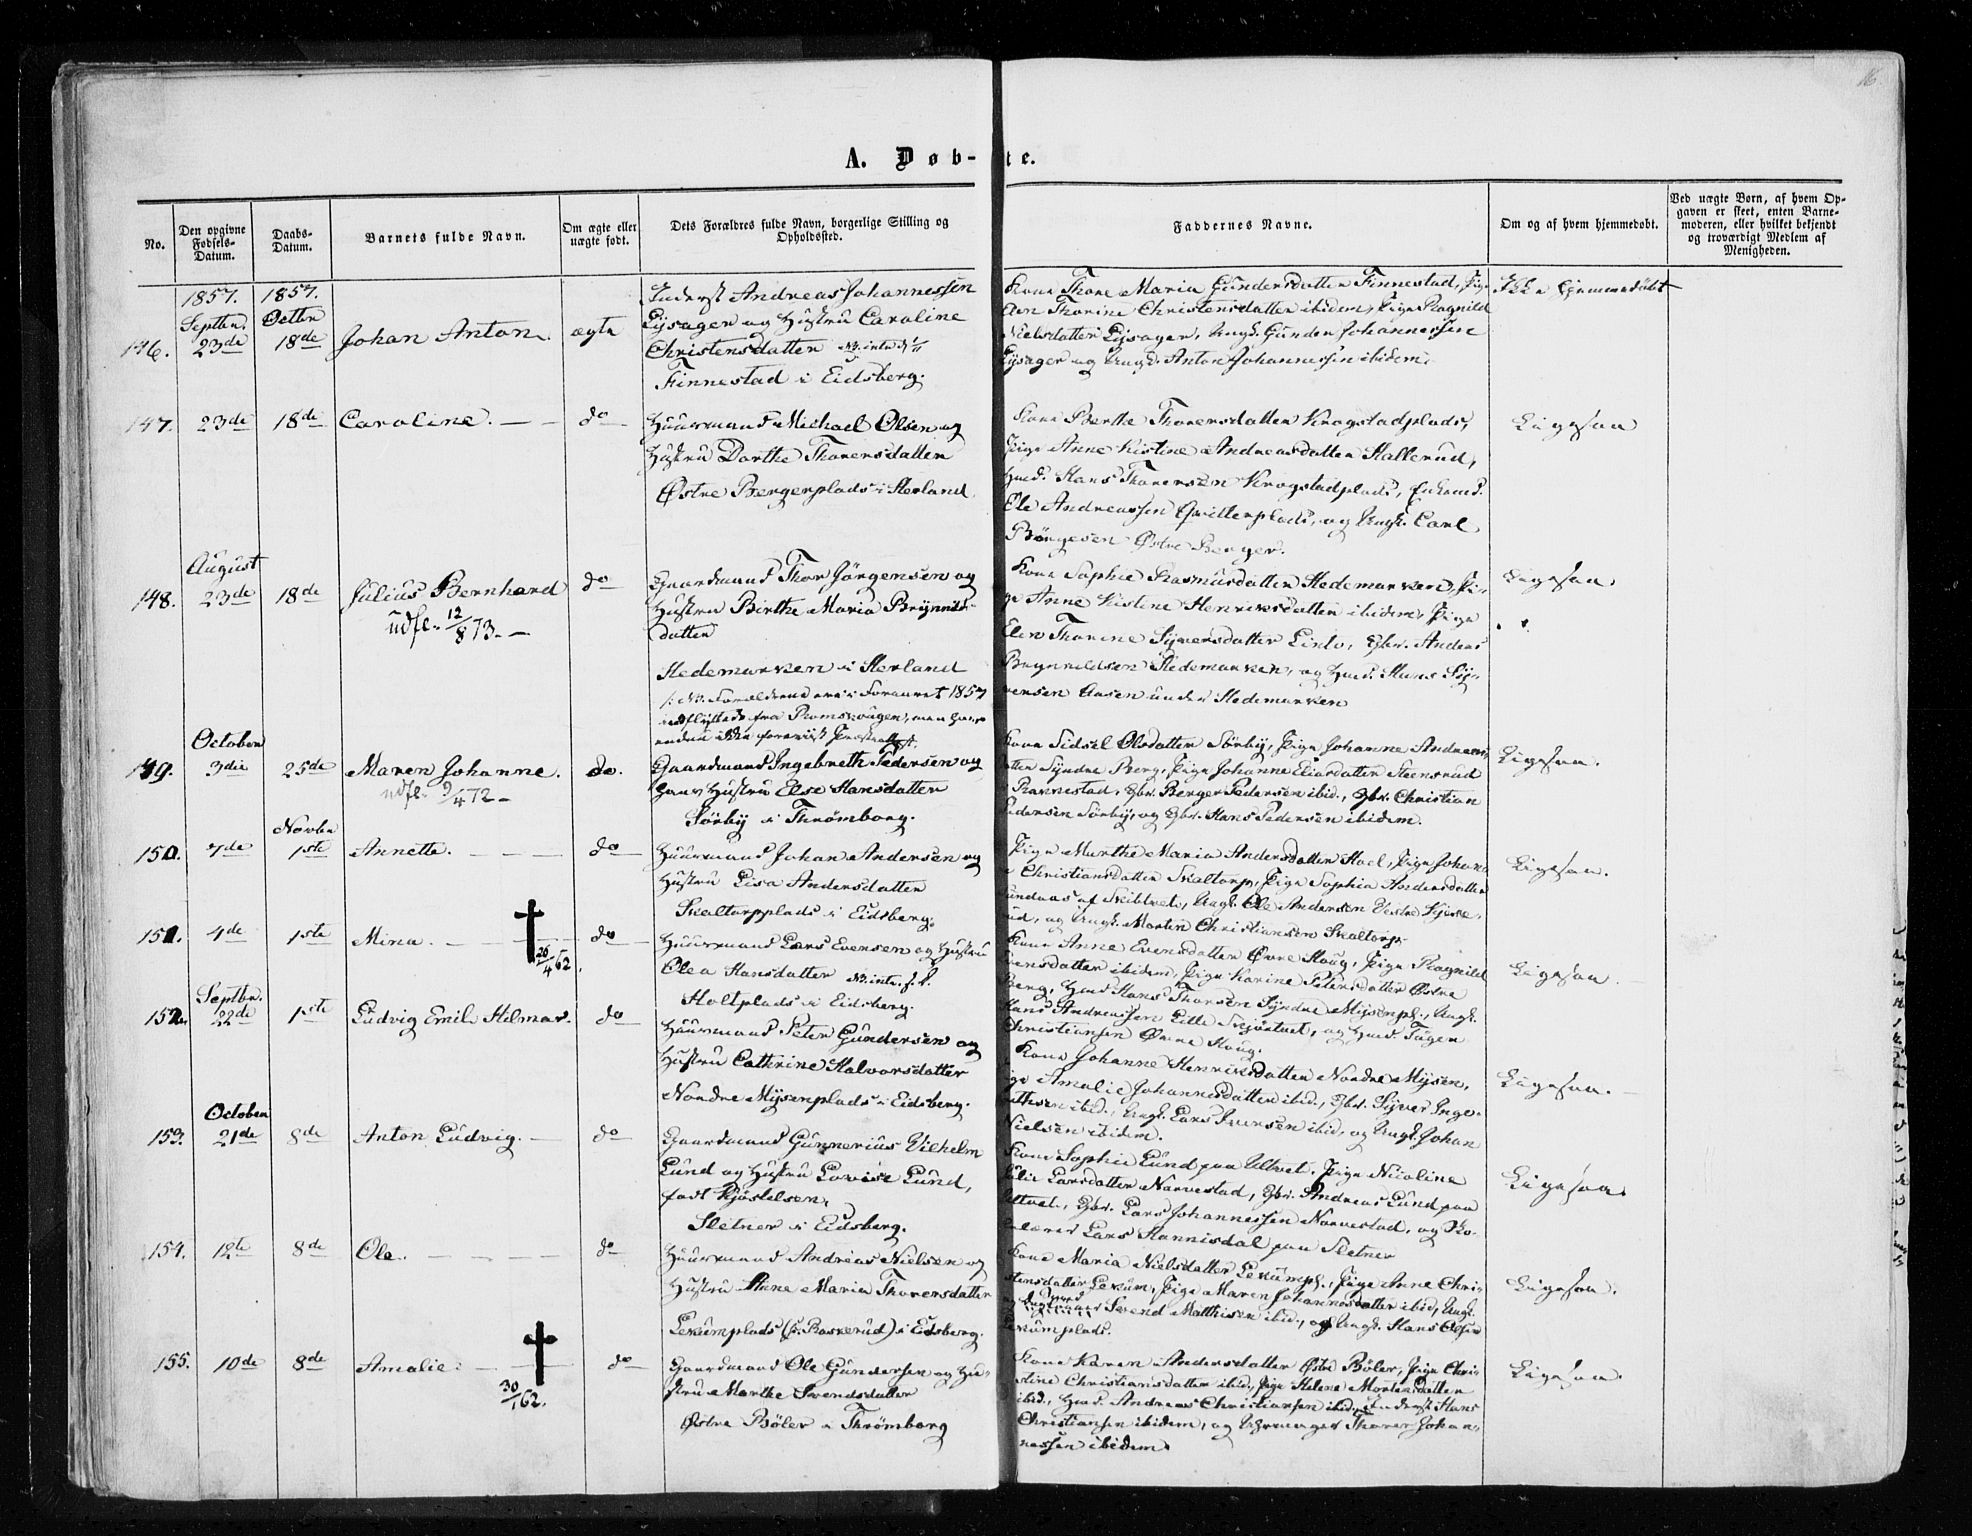 16.
A. Døb-te.
No.
Den opgivne Fødsels-Datum.
Daabs-Datum.
Barnets fulde Navn.
Om ægte eller uægte født.
Dets Forældres fulde Navn, borgerlige Stilling og Opholdssted.
Faddernes Navne.
Om og af hvem hjemmedøbt.
Ved uægte Børn, af hvem Opgaven er skeet, enten Barnemoderen, eller hvilket bekjendt og troværdigt Medlem af Menigheden.
1857. 1857.
Septbr. Octbr
146. 23de 18de Johan Anton. ægte
Inderst Andreas Johannessen
Lysager og Hustru Caroline
Christensdatter
Finnestad i Eidsberg.
Kone Thore Maria Gundersdatter Finnestad, Pi-
Thorine Christensdatter ibidem, Pige Ragnild
Nielsdatter Lysager, Ungk. Gunder Johannessen
Lysager og Ungk. Anton Johannessen ibidem.
Ikke hjemmedøbt
147. 23de 18de Caroline. do
Huusmand Michael Olsen og
Hustru Dorthe Thorersdatter
Østre Bergerplads i Herland.
Kone Berthe Thorersdatter Krogstadplads,
Pige Anne Kistine Andreasdatter Hallerud,
Hmd. Hans Thorersen Krogstadplads, Enkemd.
Ole Andreassen Qvitterplads, og Ungk. Carl
Börgesen Østre Berger.
Ligesaa
August
148. 23de 18de Julius Bernhard do
udfl. 12/8 73.
Gaardmand Thor Jörgensen og
Hustru Birthe Maria Brynnils-
datter
Hedemarken i Herland
Kone Sophie Rasmusdatter Hedemarken, Pi-
ge Anne Kistine Henriksdatter ibidem, Pige
Elen Thorine Syversdatter Linto, Gbr. Anders
Brynnildsen Hedemarken, og Hmd. Hans Sy-
versen Aasen under Hedemarken
Ligesaa.
October
149. 3die 25de Maren Johanne. do.
udfl. 9/4 72
Gaardmand Ingebreth Pedersen og
Hans Hustru Else Hansdatter
Sörby i Thrömborg.
Kone Sidsel Olsdatter Sörby, Pige Johanne Andreas-
datter Syndre Berg, Pige Johanne Eliasdatter Steensrud
Rannestad, Gbr. Berger Pedersen ibid., Gbr. Christian
Pedersen Sörby, og Gbr. Hans Pedersen ibidem.
Ligesaa.
Novbr
150. 7de 1ste Annette. do
Huusmand Johan Andersen og
Hustru Lisa Andersdatter
Skaltorpplads i Eidsberg.
Pige Marthe Maria Andersdatter Hoel, Pige Johan-
Christiansdatter Skaltorp, Pige Sophia Andersdatter
af Skibtvet, Ungk. Ole Andersen Vestre
og Ungk. Morten Christiansen Skaltorp.
Ligesaa.
151. 4de 1ste Mina. do
26/4 62.
Huusmand Lars Evensen og Hustru
Olea Hansdatter
Holtplads i Eidsberg.
Kone Anne Evensdatter Øvre Haug, Pige Ragnild
Evensdatter ibidem, Pige Karine Petersdatter Østre
Berg, Hmd Hans Thorsen Syndre Mysenpl., Ungk.
Hans Andreassen Lille og Hmd.
Christiansen Øvre Haug.
Ligesaa
Septbr.
152. 22de 1ste Ludvig Emil Hilmar. do
Huusmand Peter Gundersen og
Hustru Cathrine Halvorsdatter
Nordre Mysenplads i Eidsberg.
Kone Johanne Henriksdatter Nordre Mysen,
Pige Amalie Johannesdatter ibid., Gbr. Syver Inge-
ibid., Ungk. Lars Iversen ibid, og Ungk. Johan
Nielsen ibidem.
Ligesaa.
October
153. 21de 8de Anton Ludvig. do
Gaardmand Gunnerius Vilhelm
Lund og Hustru Lovise Lund,
født Kjöstelsen,
Sletner i Eidsberg.
Kone Sophie Lund paa Ultvet, Pige Nicoline
Julie Larsdatter Narvestad, Gbr. Andreas Lund paa
Ultvet, Gbr. Lars Johannessen Narvestad, og
Lars Hannisdal paa Sletner
Ligesaa.
154. 12te 8de Ole. do
Huusmand Andreas Nielsen og
Hustru Anne Maria Thorersdatter
Lekumplads (Baskerud) i Eidsberg.
Kone Maria Nielsdatter Lekumpl., Pige Anne Chri-
stensdatter Lekum, Pige Maren Johannesdatter ibid,
Svend Matthisen ibid., og Ungk. Hans Olsen
Lekumplads.
Ligesaa.
155. 10de 8de Amalie. do
30/1 62.
Gaardmand Ole Gundersen og Hu-
stru Marthe Svendsdatter
Østre Böler i Thrömborg
Kone Karen Andersdatter Østre Böler, Pige Chri-
stine Christiansdatter ibid., Pige Helene Mortensdatter
ibid., Hmd. Andreas Christiansen ibid., Inderst Hans
Christiansen ibidem, og Thorer Johan-
nessen ibidem.
Ligesaa.